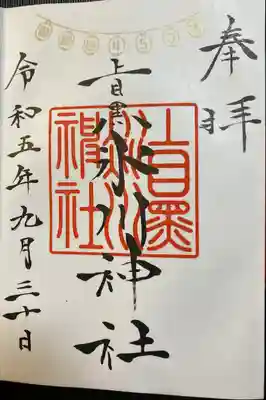 奉拝
上目黒氷川神社
上目黒
神社
令和五年九月三十日